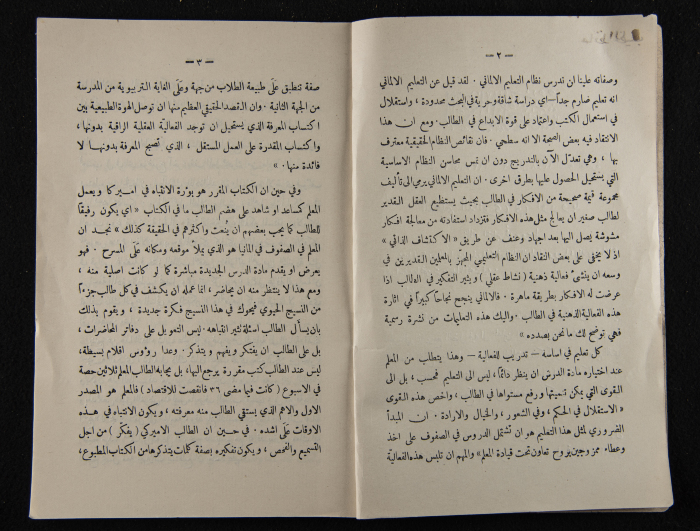 — ٢ —
وصفاته علينا ان ندرس نظام التعليم الالماني . لقد قيل عن التعليم الالماني
انه تعليم صارم جداً — اي دراسة شاقة وحرية في البحث محدودة ، واستقلال
في استعمال الكتب واعتماد على قوة الابداع في الطالب . ومع ان هذا
الانتقاد فيه بعض الصحة الا انه سطحي . فان نقائص النظام الحقيقية معترف
بها ، وهي تعدّل الآن بالتدريج دون ان نمس محاسن النظام الاساسية
التي يستحيل الحصول عليها بطرق اخرى . ان التعليم الالماني يرمي الى تأليف
مجموعة قيمة صحيحة من الافكار في الطالب بحيث يستطيع العقل القدير
لطالب صغير ان يعالج مثل هذه الافكار فتزداد استفادته من معالجة افكار
مشوشة يصل اليها بعد اجهاد وعنف عن طريق « الاكتشاف الذاتي »
اذ لا يخفى على بعض النقاد ان النظام التعليمي المجهز بالمعلمين القديرين في
وسعه ان ينشئ فعالية ذهنية ( نشاط عقلي ) ويثير التفكير في الطالب اذا
عرضت له الافكار بطريقة ماهرة . فالالماني ينجح نجاحاً كبيراً في اثارة
هذه الفعالية الذهنية في الطالب . واليك هذه التعليمات من نشرة رسمية
فهي توضح لك ما نحن بصدده »
كل تعليم في اساسه — تدريب للفعالية — وهذا يتطلب من المعلم
عند اختياره مادة الدرس ان ينظر دائماً ، ليس الى التعليم فحسب ، بل الى
القوى التي يمكن تنميتها ورفع مستواها في الطالب ، واخص هذه القوى
« الاستقلال في الحكم ، وفي الشعور ، والخيال والارادة . ان المبدأ
الضروري لمثل هذا التعليم هو ان تشتمل الدروس في الصفوف على اخذ
وعطاء ممزوجين بروح تعاون تحت قيادة المعلم » والمهم ان تلبس هذه الفعالية
— ٣ —
صفة تنطبق على طبيعة الطلاب من جهة وعلى الغاية التربيوية من المدرسة
من الجهة الثانية . وان القصد الحقيقي العظيم منها ان توصل الهوة الطبيعية بين
اكتساب المعرفة الذي يستحيل ان توجد الفعالية العقلية الراقية بدونها ،
واكتساب المقدرة على العمل المستقل ، الذي تصبح المعرفة بدونها لا
فائدة منها . »
وفي حين ان الكتاب المقرر هو بؤرة الانتباه في اميركا ويعمل
المعلم كمساعد او شاهد على هضم الطالب ما في الكتاب « اي يكون رفيقاً
للطالب كما يجب بعضهم ان يُنعت واكثرهم في الحقيقة كذلك » نجد ان
المعلم في الصفوف في المانيا هو الذي يملأ موقعه ومكانه على المسرح . فهو
يعرض او يقدم مادة الدرس الجديدة مباشرة كما لو كانت اصلية منه ،
ومع هذا لا ينتظر منه ان يحاضر ، انما عمله ان يكشف في كل طالب جزءاً
من النسيج الحيوي فيحوك في هذا النسيج فكرة جديدة ، ويقوم بذلك
بان يسأل الطالب اسئلة تثير انتباهه . ليس التعويل على دفاتر المحاضرات ،
بل على الطالب ان يفتكر ويفهم ويتذكر . وعدا رؤوس اقلام بسيطة ،
ليس عند الطالب كتب مقررة يرجع اليها ، بل يجابه الطالب المعلم ثلاثين حصة
في الاسبوع ( كانت فيما مضى ٣٦ فانقصت للاقتصاد ) فالمعلم هو المصدر
الاول والاهم الذي يستقي الطالب منه معرفته ، ويكون الانتباه في هذه
الاوقات على اشده . في حسين ان الطالب الاميركي ( يفكر ) من اجل
التسميع والفحص ، ويكون تفكيره بصفة كلمات يتذكرها من الكتاب المطبوع ،